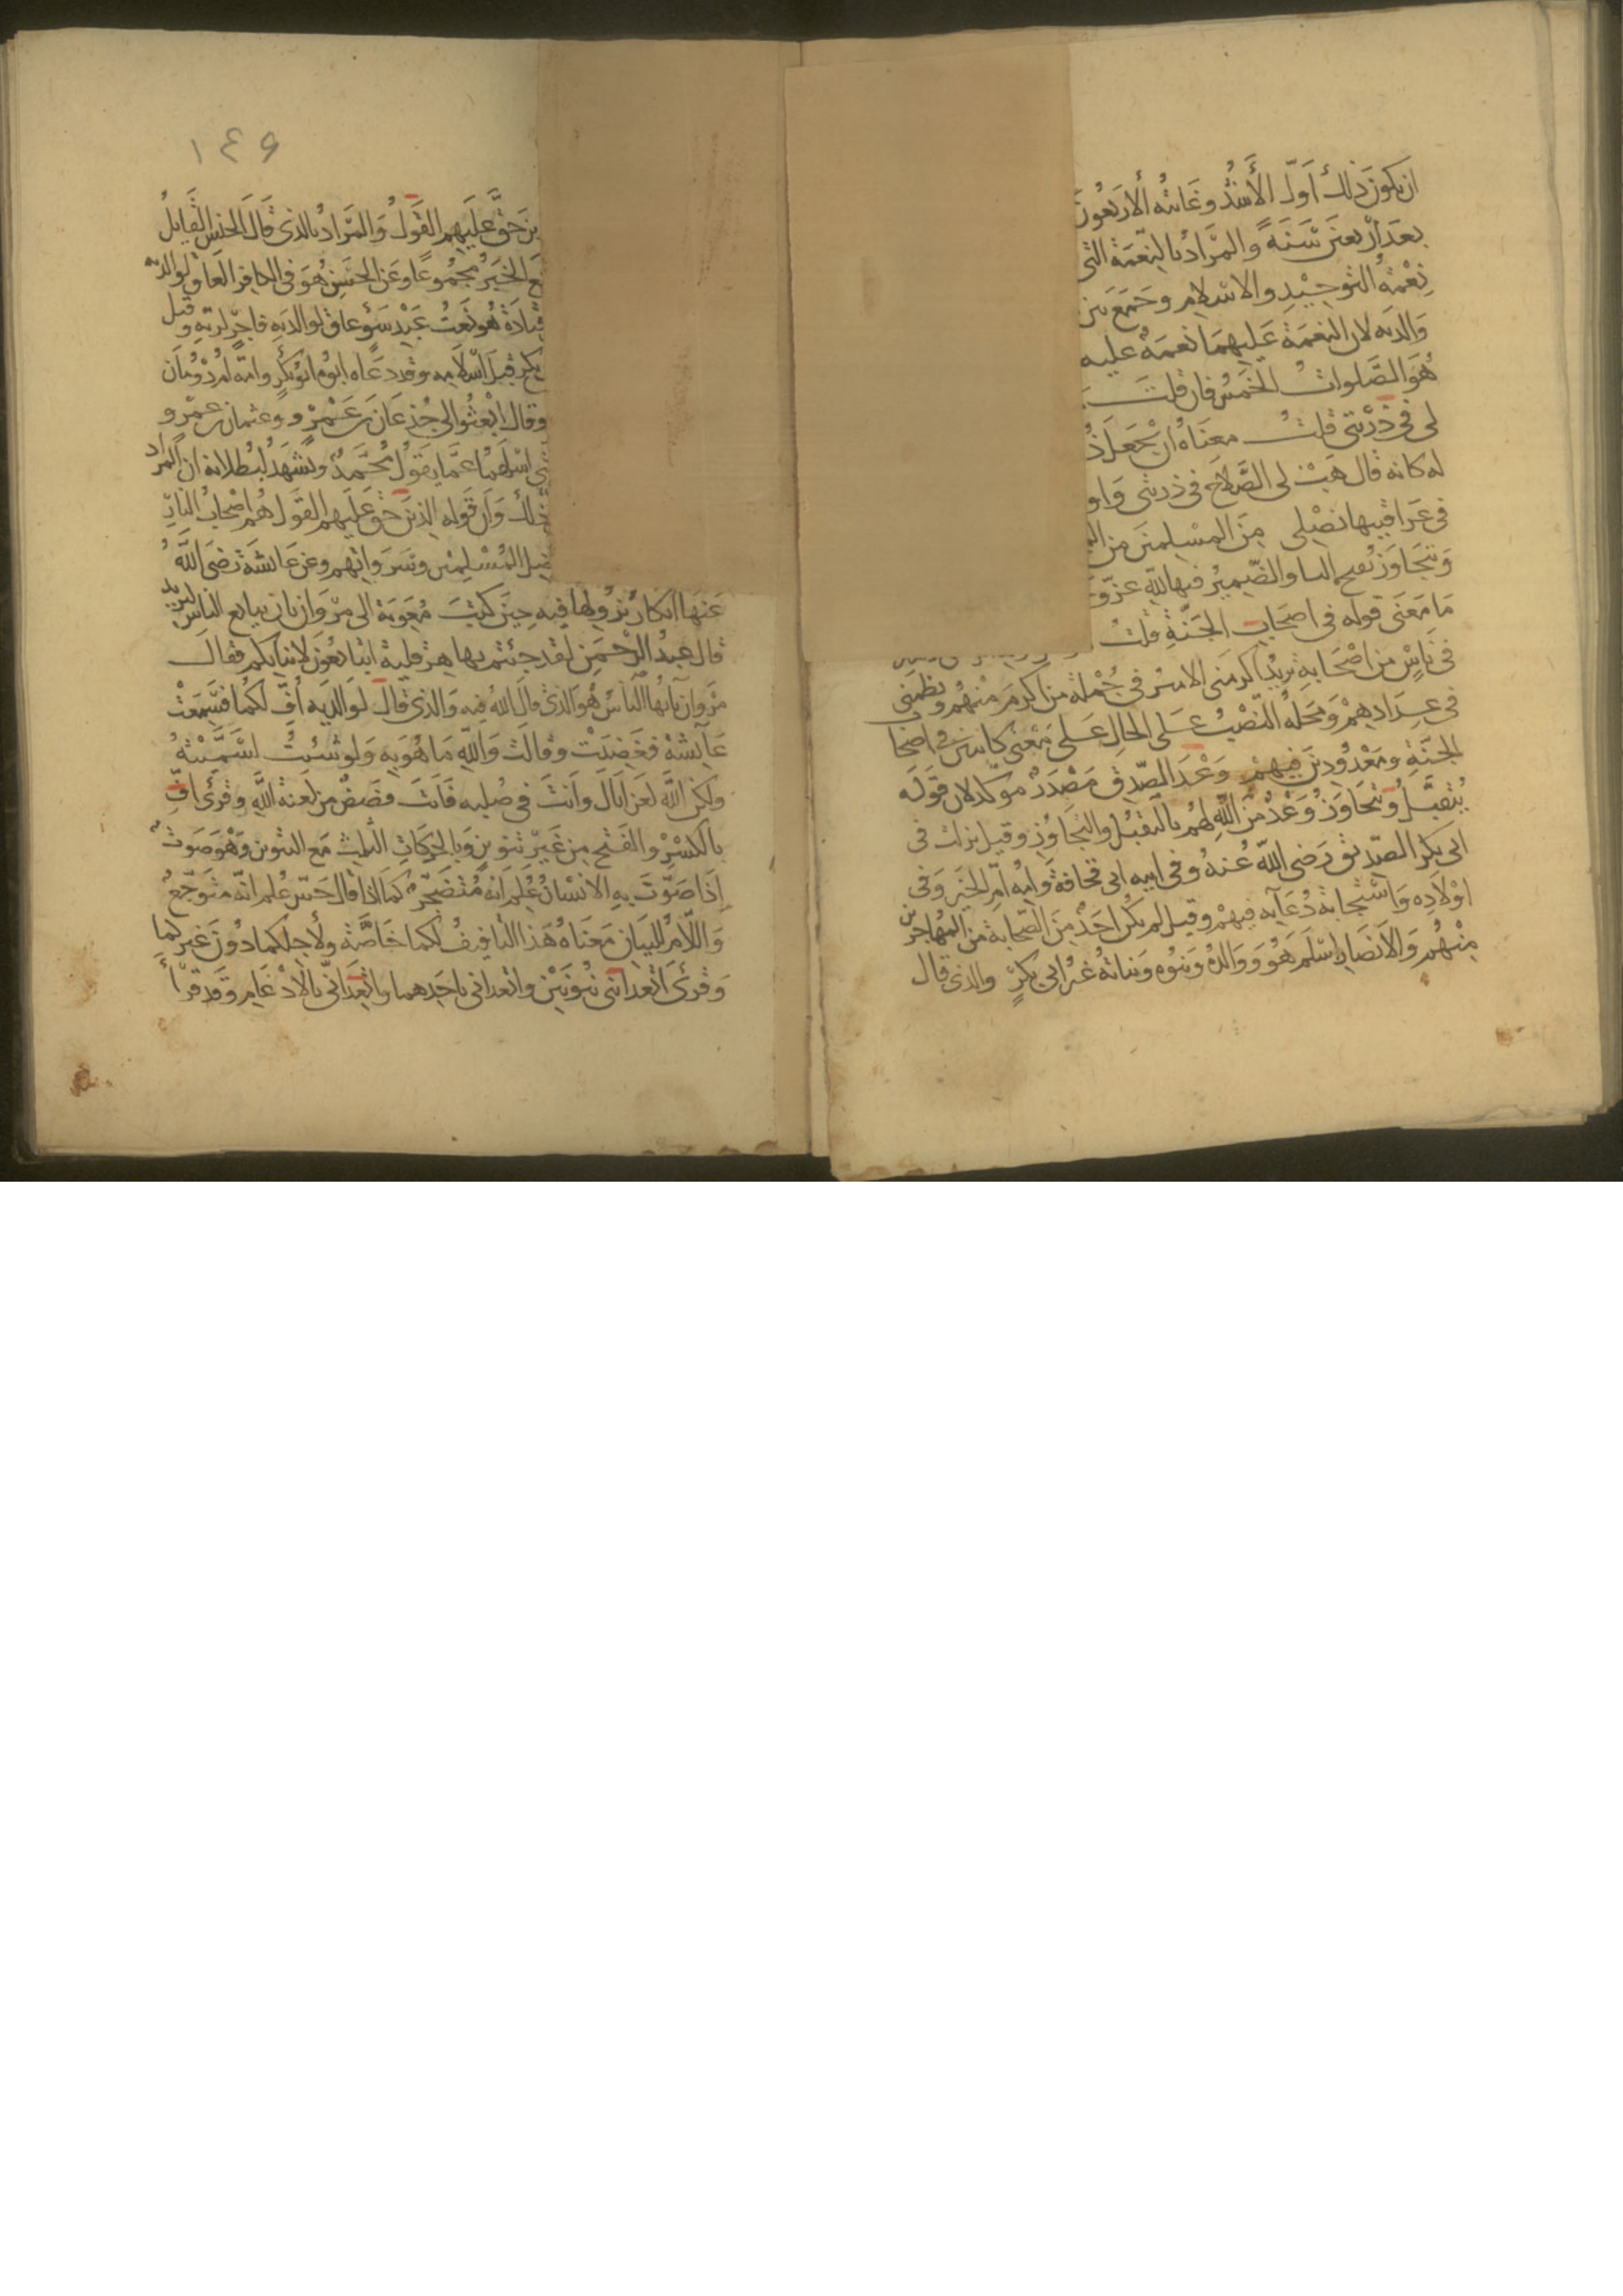 ان يكون ذلك اول الأشد وغايته الأربعون
بعد اربعين سنة والمراد بالنعمة التي
نعمة التوحيد والاسلام وجمع بين
والديه لان النعمة عليهما نعمة عليه
هو الصلوات الخمس فان قلت
لي في ذريتي قلت معناه ان يجعل ذ
له كانه قال هب لي الصلاح في ذريتي واو
في عراقيبها نصلي من المسلمين من
ونتجاوز بفتح اليا والضمير فيها لله عز و
ما معنى قوله في اصحاب الجنة قلت
في ناس من اصحابه يريد اكرمني الامير في جملة من اكرم منهم ونظمني
في عدادهم ومحله النصب على الحال على معنى كاينين في اصحا
الجنة ومعدودين فيهم وعد الصدق مصدر موكد لان قوله
يتقبل ويتجاوز وعد من الله لهم بالتقبل والتجاوز وقيل نزلت في
ابي بكر الصديق رضي الله عنه وفي ابيه ابي قحافة وامه ام الخير وفي
اولاده واستجابة دعايه فيهم وقيل لم يكن احد من الصحابة من المهاجرين
منهم والانصار اسلم هو ووالداه وبنوه وبناته غير ابي بكر والذي قال
١٤٩
ين حق عليهم القول والمراد بالذي قال الجنس القايل
ع الخبر مجموعا وعن الحسن هو في الكافر العاق لوالديه
قتادة هو نعت عبد سوء عاق لوالديه فاجر لربه وقيل
بكر قبل اسلامه وقد دعاه ابوه ابو بكر وامه ام رومان
وقال ابعثوا لي جذعان بن عمرو وعثمان بن عمرو
اسلهما عما يقول محمد ويشهد لبطلانه ان المراد
ذلك وان قوله الذين حق عليهم القول هم اصحاب النار
المسلمين وسرواتهم وعن عايشة رضي الله
عنها انكار نزولها فيه حين كتب معوية الى مروان بان يبايع الناس ليزيد
قال عبد الرحمن لقد جئتم بها هرقلية اتبايعون لابنايكم فقال
مروان يايها الناس هو الذي قال الله فيه والذي قال لوالديه اف لكما فسمعت
عايشة فغضبت وقالت والله ما هو به ولو شئت لسميته
ولكن الله لعن اباك وانت في صلبه فانت فضض من لعنة الله وقرئ اف
بالكسر والفتح من غير تنوين وبالحركات الثلث مع التنوين وهو صوت
اذا صوت به الانسان علم انه متضجر كما اذا قال حس علم انه متوجع
واللام للبيان معناه هذا التافيف لكما خاصة ولاجلكما دون غيركما
وقرئ اتعدانني بنونين واتعداني باحدهما واتعداني بالادغام وقد قرا